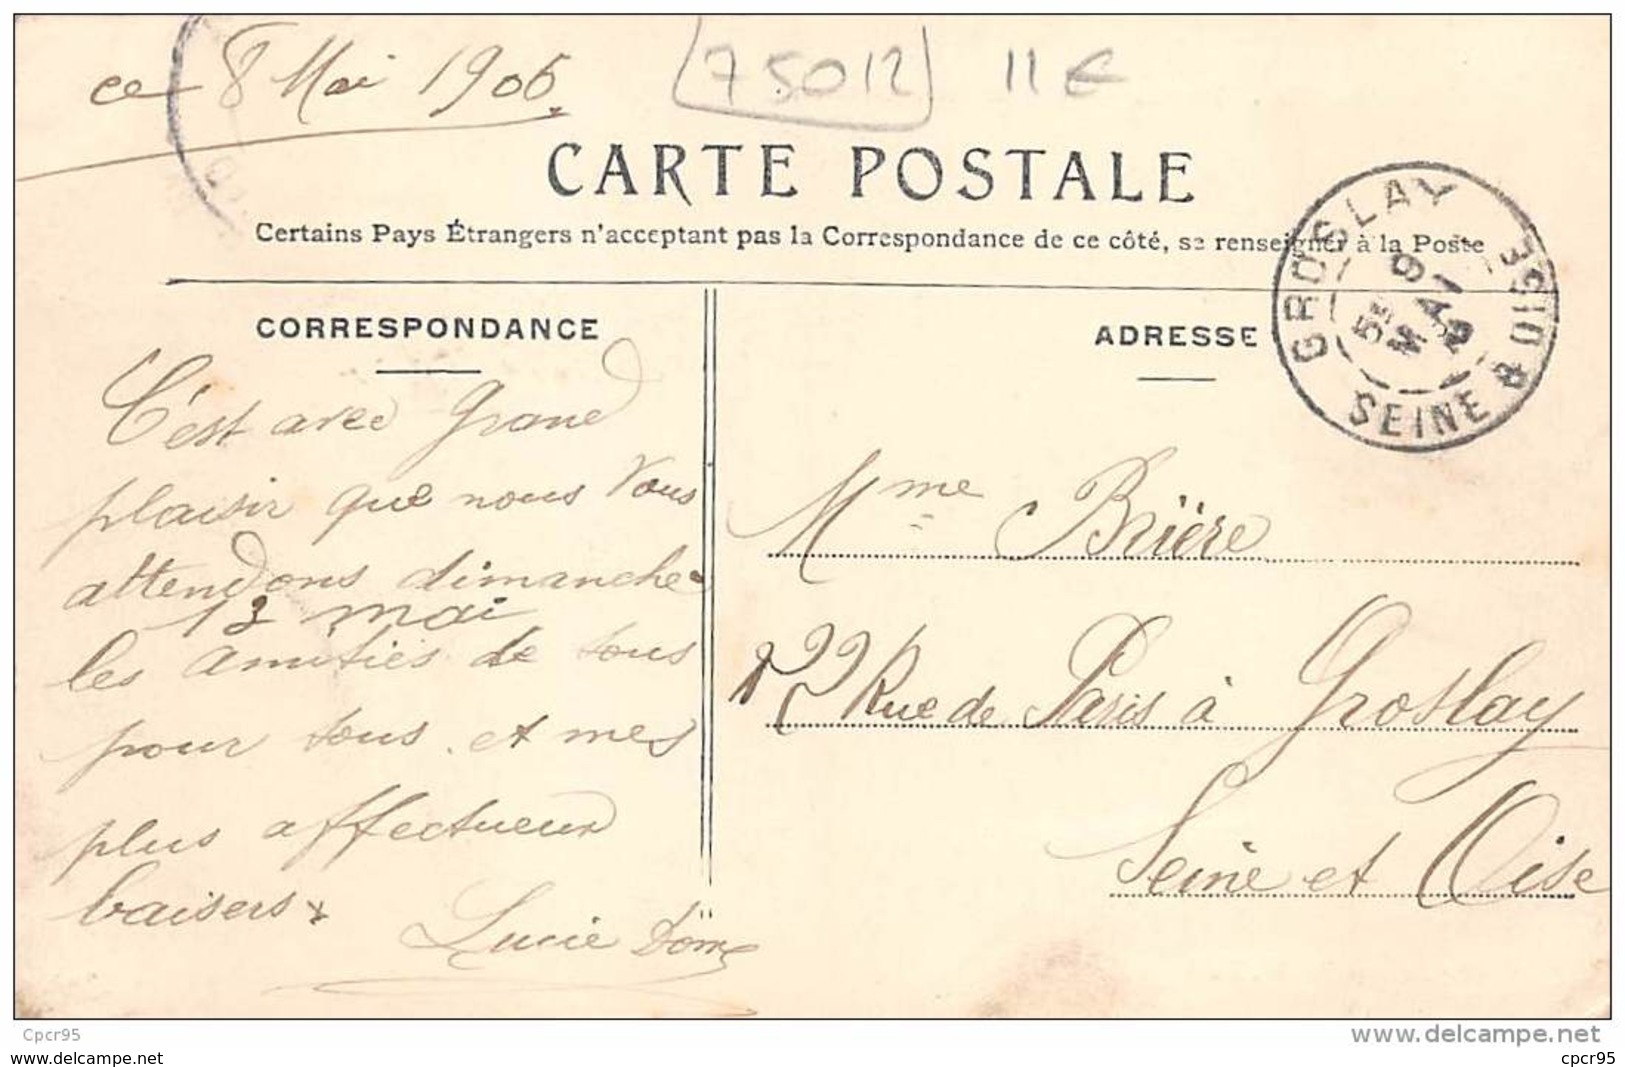 ce 8 Mai 1906
75012 11 €
CARTE POSTALE
Certains Pays Étrangers n'acceptant pas la Correspondance de ce côté, se renseigner à la Poste
CORRESPONDANCE
C'est avec Grand
plaisir que nous Vous
attendons dimanche
13 mai
les amitiés de tous
pour tous et mes
plus affectueux
baisers
Lucie
ADRESSE
GROSLAY
9
MAI
SEINE & OISE
Mme Brière
22 Rue de Paris à Groslay
Seine et Oise
Cpcr95
www.delcampe.com
www.delcampe.net
cpcr95